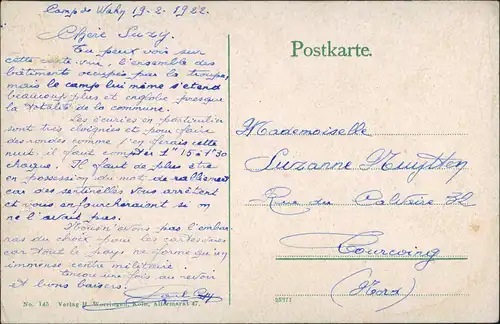 Camp de Wahn 19-2-1922
Postkarte.
Chère Suzy.
Tu peux voir sur
cette carte-vue, l'ensemble des
bâtiments occupés par la troupe,
mais le camp lui même s'étend
beaucoup plus et englobe presque
la totalité de la commune.
Les écuries en particulier
sont très éloignées et pour faire
des rondes comme j'en ferais cette
nuit il faut compter 1h 15 à 1h30
chaque. Il faut de plus être
en possession du mot de ralliement
car des sentinelles vous arrêtent
et vous enfourcheraient si on
ne l'avait pas.
Nous n'avons pas l'embar-
ras du choix pour les cartes vues
car tout le pays ne forme qu'un
immense centre militaire.
Encore une fois au revoir
et bons baisers.
Mademoiselle
Suzanne
Rue du Calvaire 32
Tourcoing
(Nord)
No. 145 Verlag H. Worringen, Köln, Altermarkt 47.